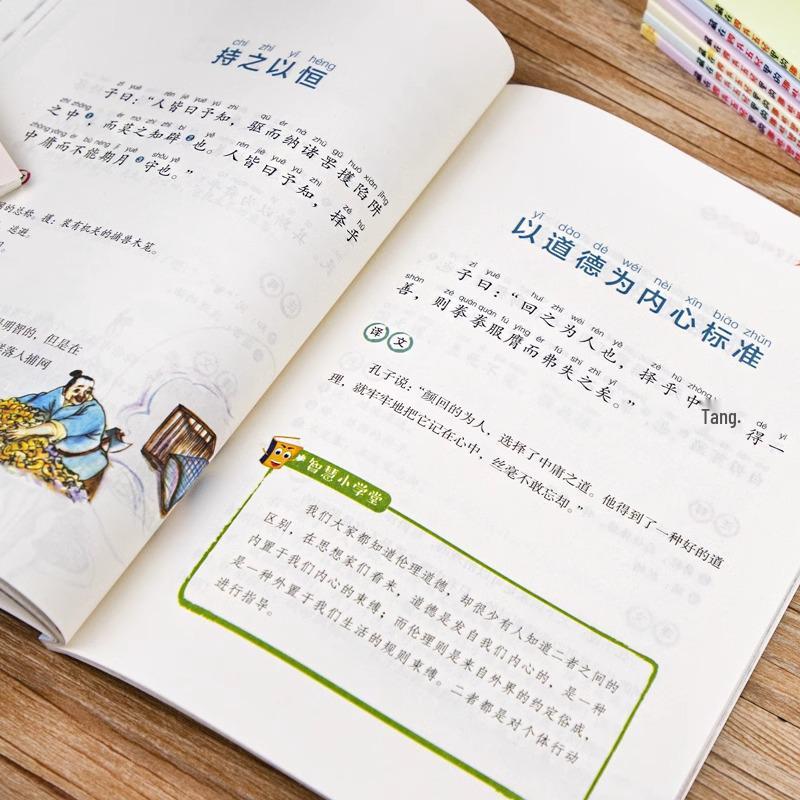 chí zhī yǐ héng
持之以恒
zǐ yuē rén jiē yuē yú zhì qū ér nà zhū gǔ huò xiàn jǐng
子曰：“人皆曰予知，驱而纳诸罟擭陷阱
zhī zhōng ér mò zhī zhī bì yě rén jiē yuē yú zhì zé hū
之中❶，而莫之知辟❷也。人皆曰予知，择乎
zhōng yōng ér bù néng jī yuè shǒu yě
中庸而不能期月❸守也。”
的总称。擭：装有机关的捕兽木笼。
逃避。
明智的，但是在
落入捕网
yǐ dào dé wéi nèi xīn biāo zhǔn
以道德为内心标准
zǐ yuē huí zhī wéi rén yě zé hū zhōng dé yī
子曰：“回之为人也，择乎中 得一
shàn zé quán quán fú yīng ér fú shī zhī yǐ
善，则拳拳服膺而弗失之矣。”
Tang.
译文
孔子说：“颜回的为人，选择了中庸之道。他得到了一种好的道
理，就牢牢地把它记在心中，丝毫不敢忘却。”
智慧小学堂
我们大家都知道伦理道德，却很少有人知道二者之间的
区别，在思想家们看来，道德是发自我们内心的，是一种
内置于我们内心的束缚；而伦理则是来自外界的约定俗成，
是一种外置于我们生活的规则束缚。二者都是对个体行动
进行指导。